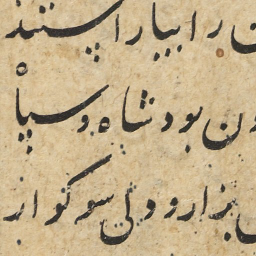 را بیاراستند
ون بود شاه و سپاه
زار و دلی سوکوار